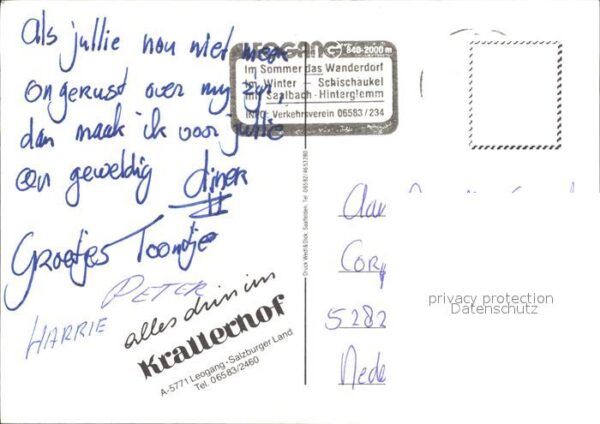 Als jullie nou niet meer
ongerust over my zijn,
dan maak ik voor jullie
een geweldig diner
Groetjes Toontje
PETER
HARRIE
alles drin im
Krallerhof
A-5771 Leogang · Salzburger Land
Tel. 06583/2460
LEOGANG 840-2000 m
Im Sommer das Wanderdorf
Im Winter – Schischaukel
mit Saalbach - Hinterglemm
INFO: Verkehrsverein 06583/234
Aan
Cor
5282
Nede
privacy protection
Datenschutz